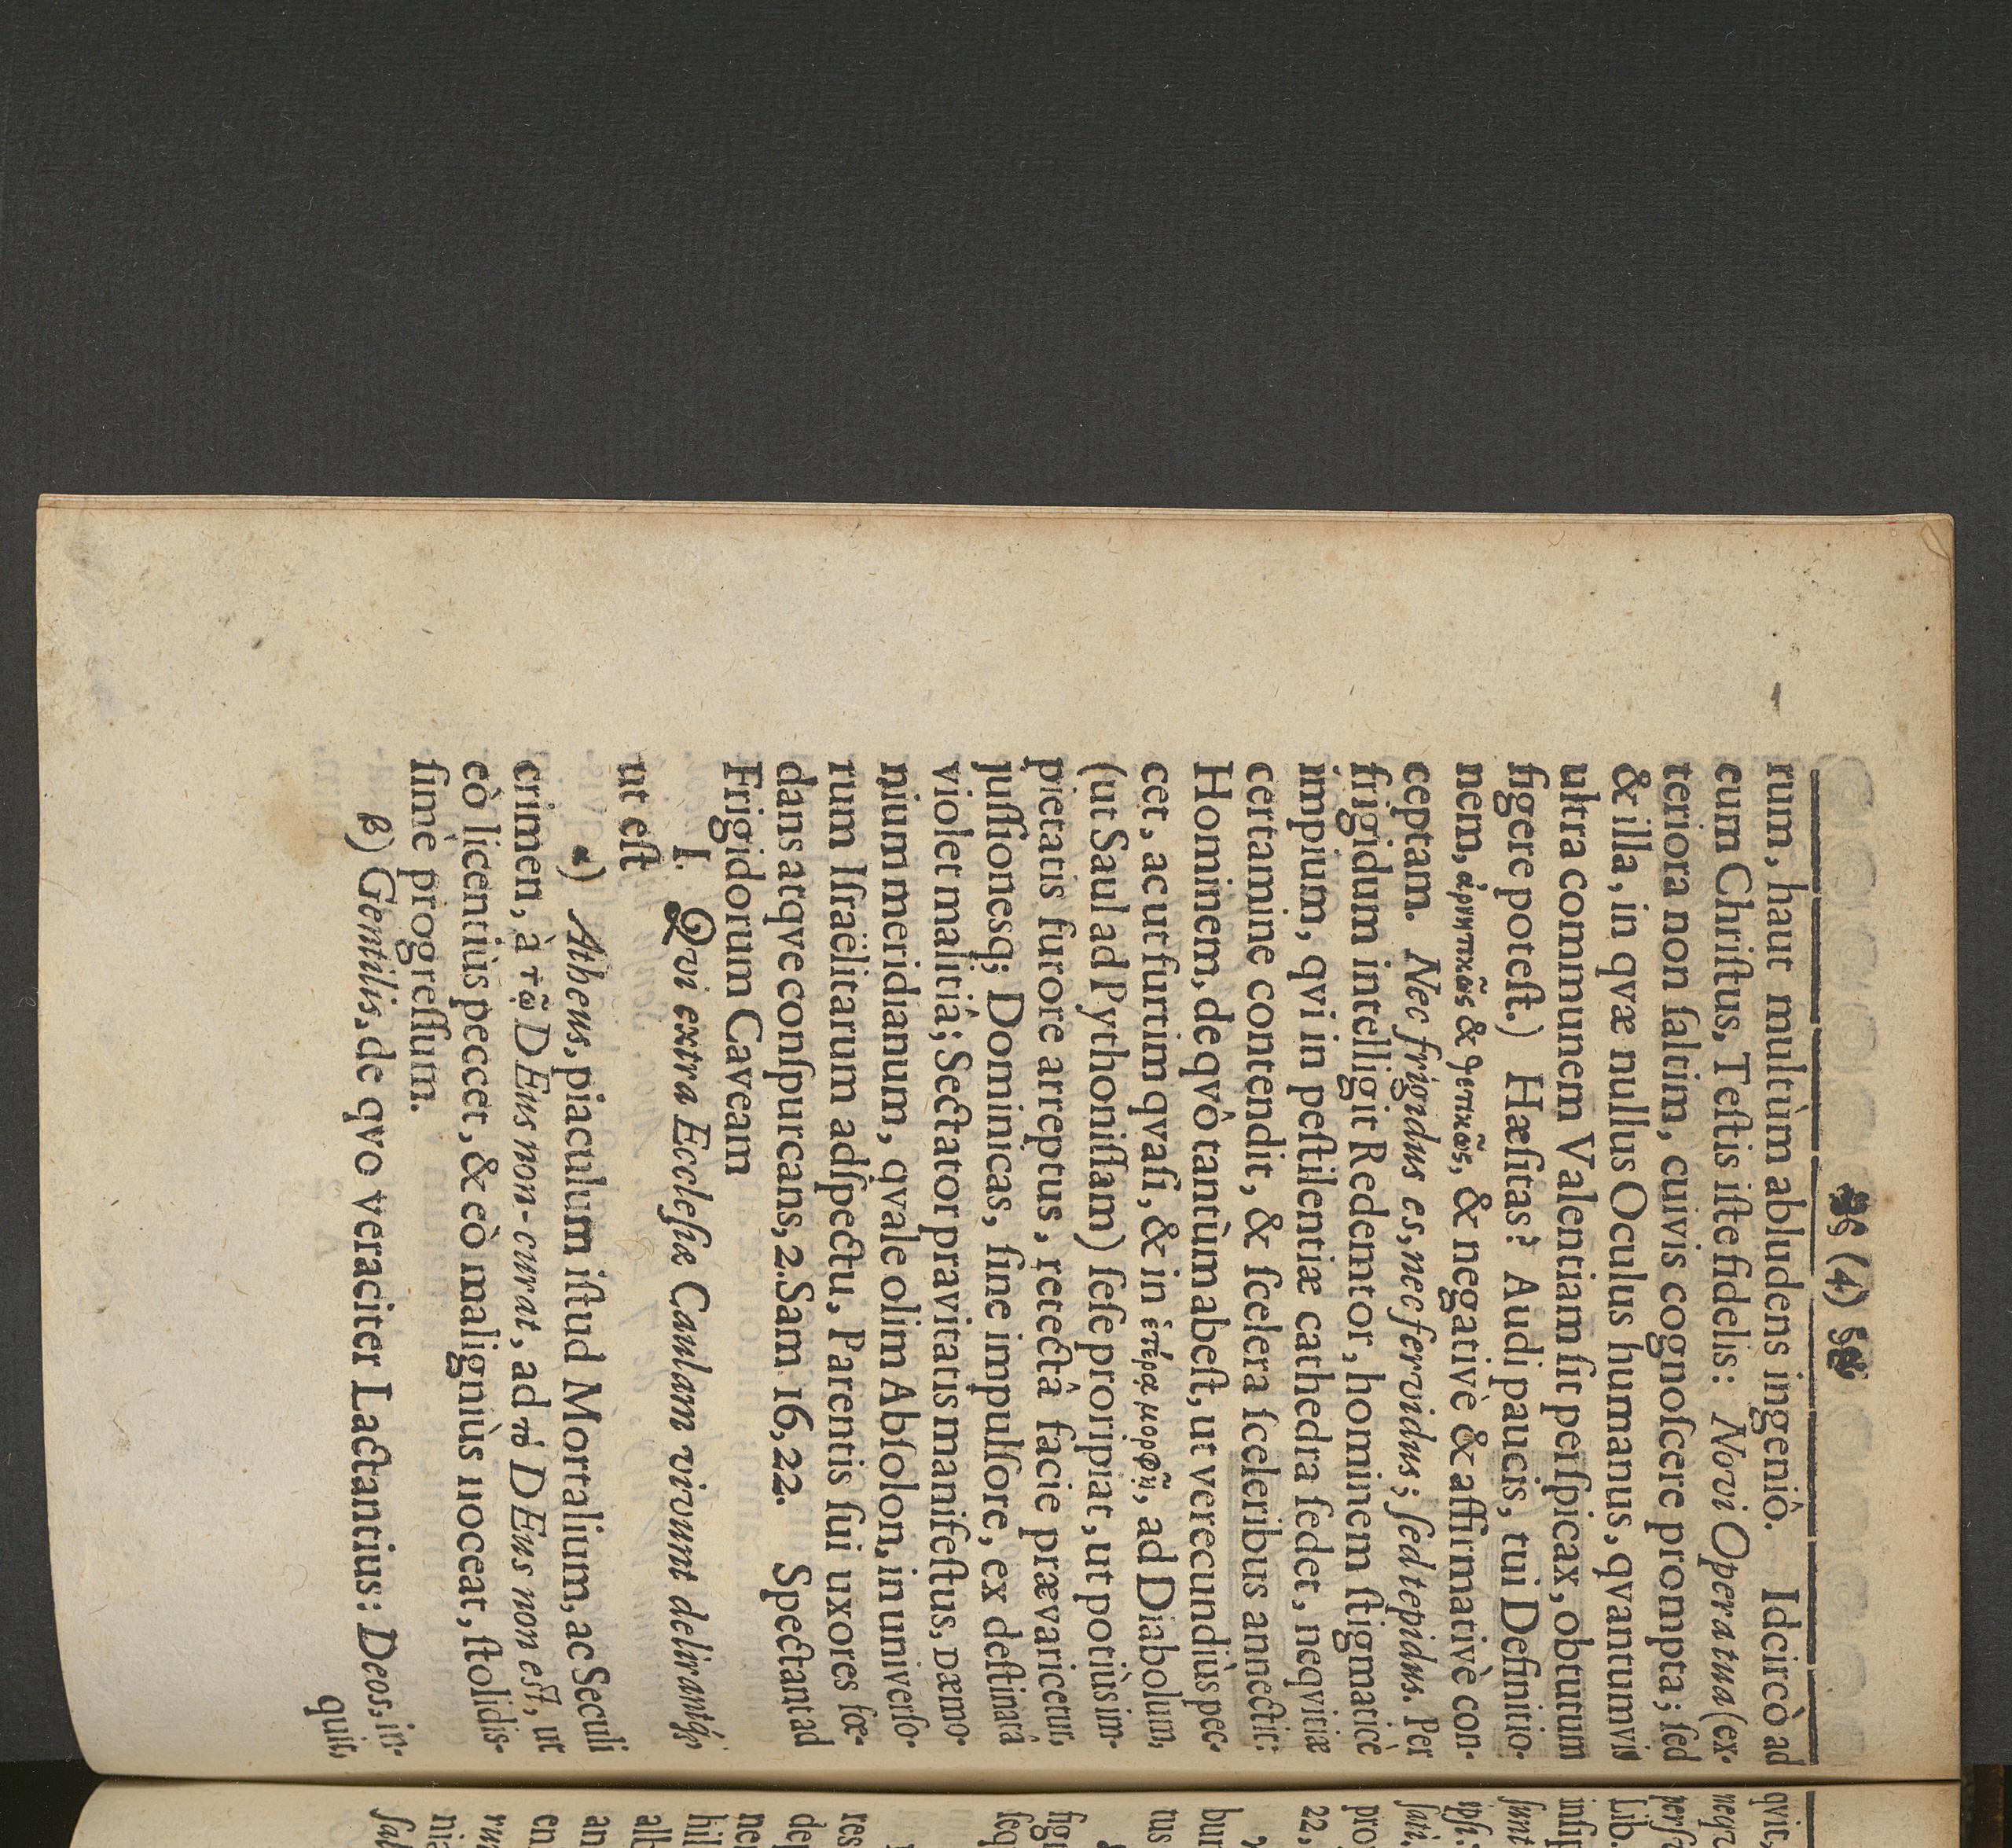 (4)
rum, haut multùm abludens ingeniô. Idcircò ad
eum Chriſtus, Teſtis iſte fidelis: Novi Opera tua (ex-
teriora non ſaltim, cuivis cognoſcere prompta; ſed
& illa, in qvæ nullus Oculus humanus, qvantumvis
ultra communem Valentiam ſit perſpicax, obtutum
figere poteſt.) Hæſitas? Audi paucis, tui Definitio-
nem, ἀρνητικῶς & θετικῶς, & negativè & affirmativè con-
ceptam. Nec frigidus es, nec fervidus; ſed tepidus. Per
frigidum intelligit Redemtor, hominem ſtigmaticè
impium, qvi in peſtilentiæ cathedra ſedet, neqvitiæ
certamine contendit, & ſcelera ſceleribus annectit:
Hominem, de qvô tantùm abeſt, ut verecundiùs pec-
cet, ac ut furtim qvaſi, & in ἑτέρᾳ μορφῇ, ad Diabolum,
(ut Saul ad Pythoniſſam) ſeſe proripiat, ut potiùs im-
pietatis furore arreptus, retectâ facie prævaricetur,
juſſionesq; Dominicas, ſine impulſore, ex deſtinatâ
violet malitiâ; Sectator pravitatis manifeſtus, dæmo-
nium meridianum, qvale olim Abſolon, in univerſo-
rum Iſraëlitarum adſpectu, Parentis ſui uxores fœ-
dans atqve conſpurcans, 2. Sam 16, 22. Spectant ad
Frigidorum Caveam
I. Qvi extra Eccleſiæ Caulam vivunt delirantq;
ut eſt
α) Atheus, piaculum iſtud Mortalium, ac Seculi
crimen, à τῷ DEus non-curat, ad τὸ DEus non est, ut
eò licentiùs peccet, & eò maligniùs noceat, ſtolidis-
ſimè progreſſum.
β) Gentilis, de qvo veraciter Lactantius: Deos, in-
quit,
qvit,
neqr
perſ
Lib.
inſi
ſunt
ipſi
ſati.
pro
22,
bur
tus
ſeq
figu
res
dep
ne
hil
alt
an
en
ru
nia
ſal